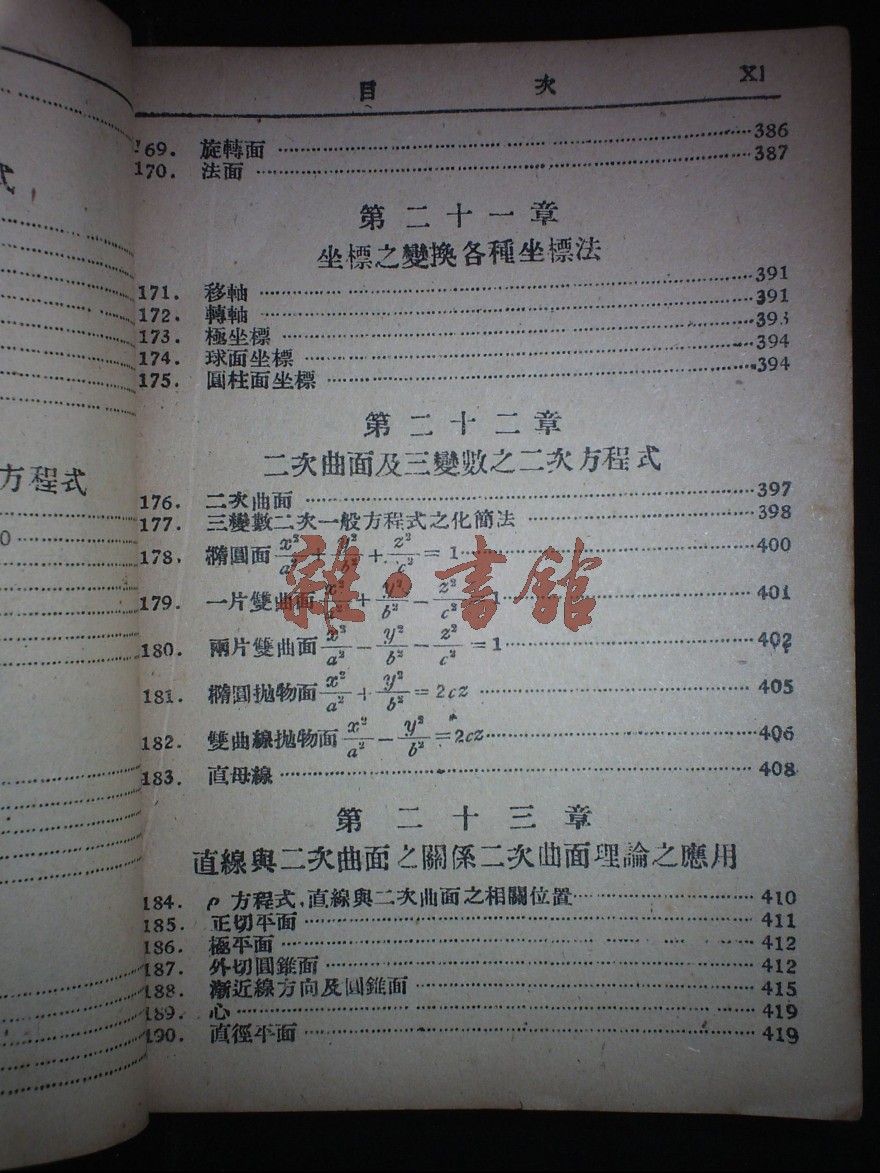 目 次 XI
169. 旋轉面 386
170. 法面 387
第二十一章
坐標之變換各種坐標法
171. 移軸 391
172. 轉軸 391
173. 極坐標 393
174. 球面坐標 394
175. 圓柱面坐標 394
第二十二章
二次曲面及三變數之二次方程式
176. 二次曲面 397
177. 三變數二次一般方程式之化簡法 398
178. 橢圓面 x²/a² + y²/b² + z²/c² = 1 400
179. 一片雙曲面 x²/a² + y²/b² − z²/c² = 1 401
180. 兩片雙曲面 x²/a² − y²/b² − z²/c² = 1 402
181. 橢圓拋物面 x²/a² + y²/b² = 2cz 405
182. 雙曲線拋物面 x²/a² − y²/b² = 2cz 406
183. 直母線 408
第二十三章
直線與二次曲面之關係二次曲面理論之應用
184. ρ 方程式,直線與二次曲面之相關位置 410
185. 正切平面 411
186. 極平面 412
187. 外切圓錐面 412
188. 漸近線方向及圓錐面 415
189. 心 419
190. 直徑平面 419
式
方程式
0
雜·書館